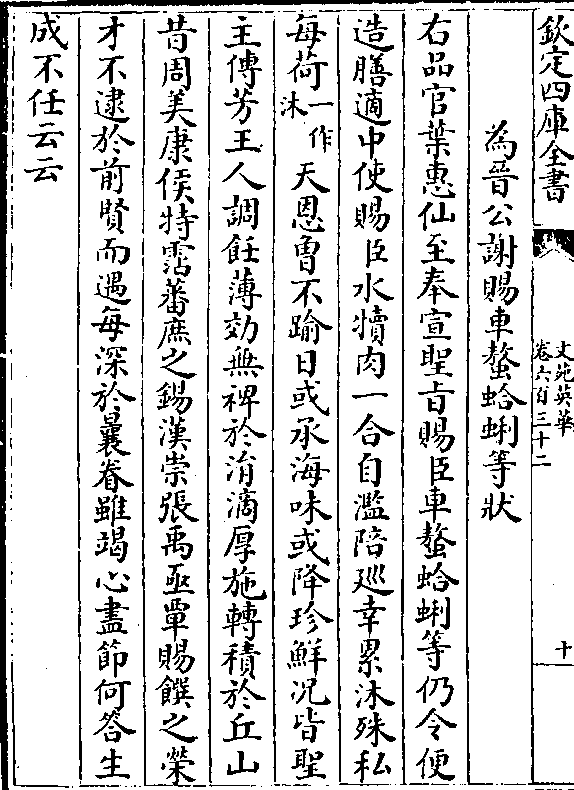 欽定四庫全書
文苑英華
卷六百三十二
十
為晉公謝賜車螯蛤蜊等狀
右品官葉惠仙至奉宣聖㫖賜臣車螯蛤蜊等仍令便
造膳適中使賜臣水犢肉一合自濫陪廵幸累沐殊私
每荷一作沐天恩曽不踰日或承海味或降珍鮮况皆聖
主傳芳王人調飪薄効無禆於涓滴厚施轉積於丘山
昔周美康侯特霑蕃庶之錫漢崇張禹亟覃賜饌之榮
才不逮於前賢而遇每深於曩眷雖竭心盡節何答生
成不任云云